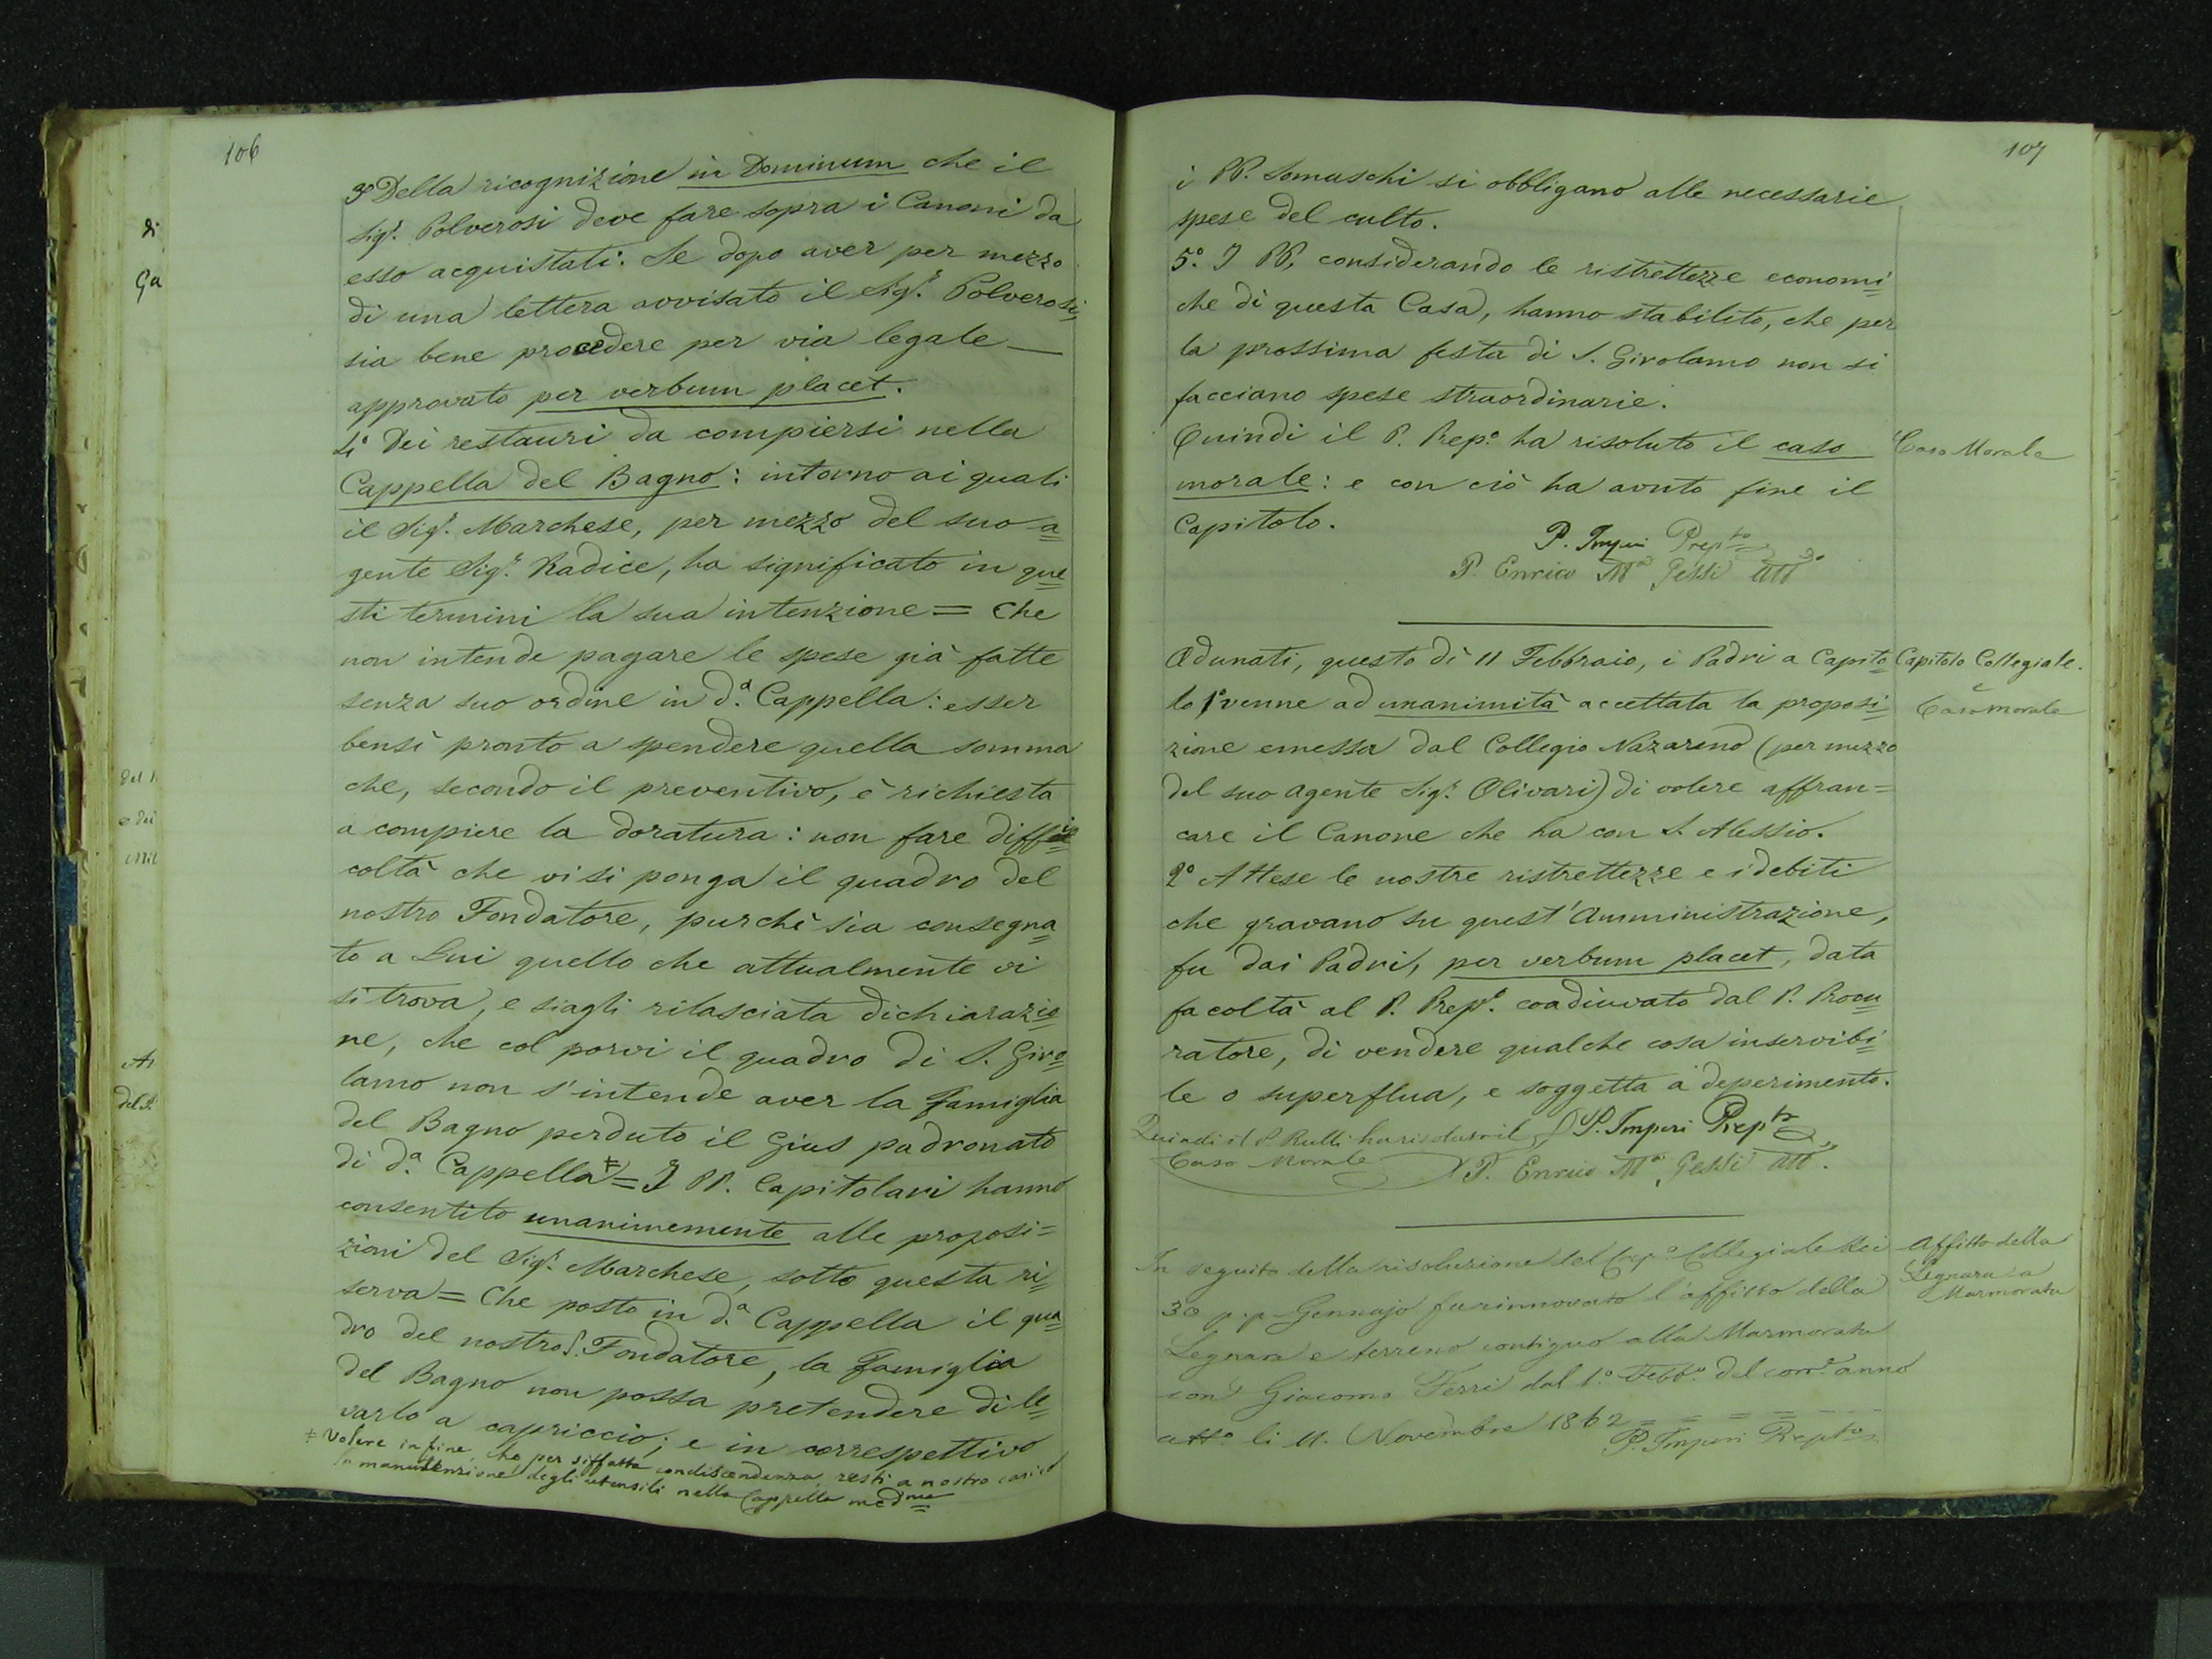 106
3º Della ricognizione in Dominum che il
Sigʳ. Polverosi deve fare sopra i Canoni da
esso acquistati. Se dopo aver per mezzo
di una lettera avvisato il Sigʳ. Polverosi,
sia bene procedere per via legale —
approvato per verbum placet.
4º Dei restauri da compiersi nella
Cappella del Bagno: intorno ai quali
il Sigʳ. Marchese, per mezzo del suo a=
gente Sigʳ. Radice, ha significato in que=
sti termini la sua intenzione = Che
non intende pagare le spese già fatte
senza suo ordine in dª. Cappella: esser
bensì pronto a spendere quella somma
che, secondo il preventivo, è richiesta
a compiere la doratura: non fare diffi=
coltà che vi si ponga il quadro del
nostro Fondatore, purchè sia consegna=
to a Lui quello che attualmente vi
si trova, e siagli rilasciata dichiarazio=
ne, che col porvi il quadro di S. Giro=
lamo non s'intende aver la Famiglia
del Bagno perduto il Gius padronato
di dª. Cappella ‡ = I PP. Capitolari hanno
consentito unanimemente alle proposi=
zioni del Sigʳ. Marchese, sotto questa ri=
serva = Che posto in dª. Cappella il qua=
dro del nostro S. Fondatore, la Famiglia
del Bagno non possa pretendere di le=
varlo a capriccio; e in correspettivo
‡ Volere infine, che per siffatta condiscendenza resti a nostro carico
la manutenzione degli utensili nella Cappella medma
di
Ga
del
e dei
Mil
del S.
107
i PP. Somaschi si obbligano alle necessarie
spese del culto.
5º. I PP, considerando le ristrettezze economi=
che di questa Casa, hanno stabilito, che per
la prossima festa di S. Girolamo non si
facciano spese straordinarie.
Quindi il P. Prepº. ha risoluto il caso
morale: e con ciò ha avuto fine il
Capitolo.
Caso Morale
P. Imperi Prepto
P. Enrico Mª Gessi Attº
Adunati, questo dì 11 Febbraio, i Padri a Capito=
lo 1º venne ad unanimità accettata la proposi=
zione emessa dal Collegio Nazareno (per mezzo
del suo agente Sigʳ. Olivari) di volere affran=
care il Canone che ha con S. Alessio.
2º Attese le nostre ristrettezze e i debiti
che gravano su quest'Amministrazione,
fu dai Padri, per verbum placet, data
facoltà al P. Prepº. coadiuvato dal P. Procu=
ratore, di vendere qualche cosa inservibi=
le o superflua, e soggetta a deperimento.
Capitolo Collegiale.
e
Caso morale
Quindi il P. Rulli ha risoluto il
Caso Morale
P. Imperi Prepto
P. Enrico Mª Gessi Att.
In seguito della risoluzione del Capº Collegiale dei
30 p.p. Gennajo fu rinnovato l'affitto della
Legnara e terreno contiguo alla Marmorata
con Giacomo Ferri dal 1º. Febbº. del corrº. anno
att. li 11. Novembre 1862 = = = =
P. Imperi Prepto
Affitto della
Legnara a
Marmorata